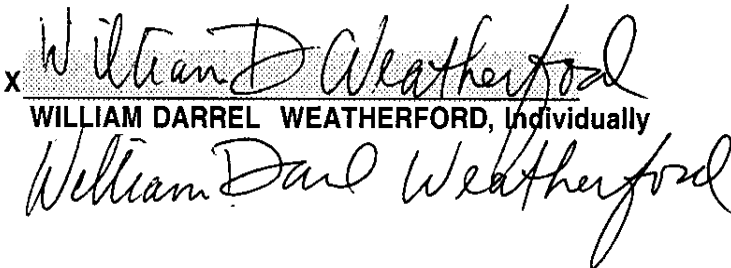 x William D Weatherford
WILLIAM DARREL WEATHERFORD, Individually
William Darl Weatherford